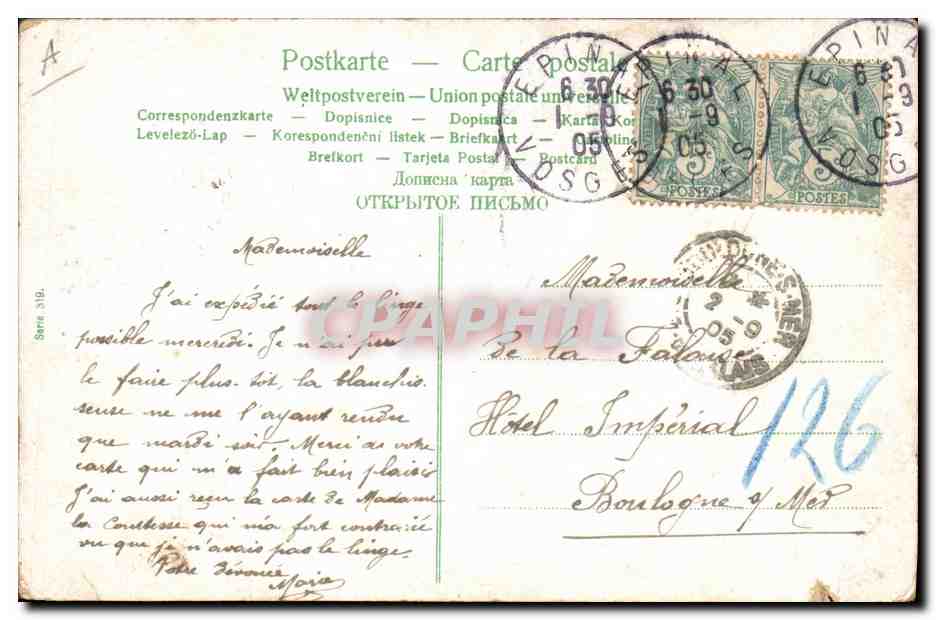 A
Postkarte — Carte postale
Weltpostverein — Union postale universelle
Correspondenzkarte — Dopisnice — Dopisnica — Karta Kores
Levelező-Lap — Korespondenční lístek — Briefkaart —
Brefkort — Tarjeta Postal — Postcard
Дописна карта
ОТКРЫТОЕ ПИСЬМО
EPINAL
6 30
1 -9
05
VOSGES
EPINAL
6 30
1 -9
05
VOSGES
EPINAL
6 30
1 -9
05
VOSGES
5c
POSTES
5c
POSTES
Serie 319.
Mademoiselle
J'ai expédié tout le linge
possible mercredi. Je n'ai pu
le faire plus tôt, la blanchis
seuse ne me l'ayant rendu
que mardi soir. Merci de votre
carte qui m'a fait bien plaisir
J'ai aussi reçu la carte de Madame
la Comtesse qui m'a fort contrariée
vu que je n'avais pas le linge.
Votre dévouée
Marie
2 -9
05
S-MER
CALAIS
Mademoiselle
de la Falaise
Hôtel Impérial
Boulogne s/ Mer
126
CPAPHIL